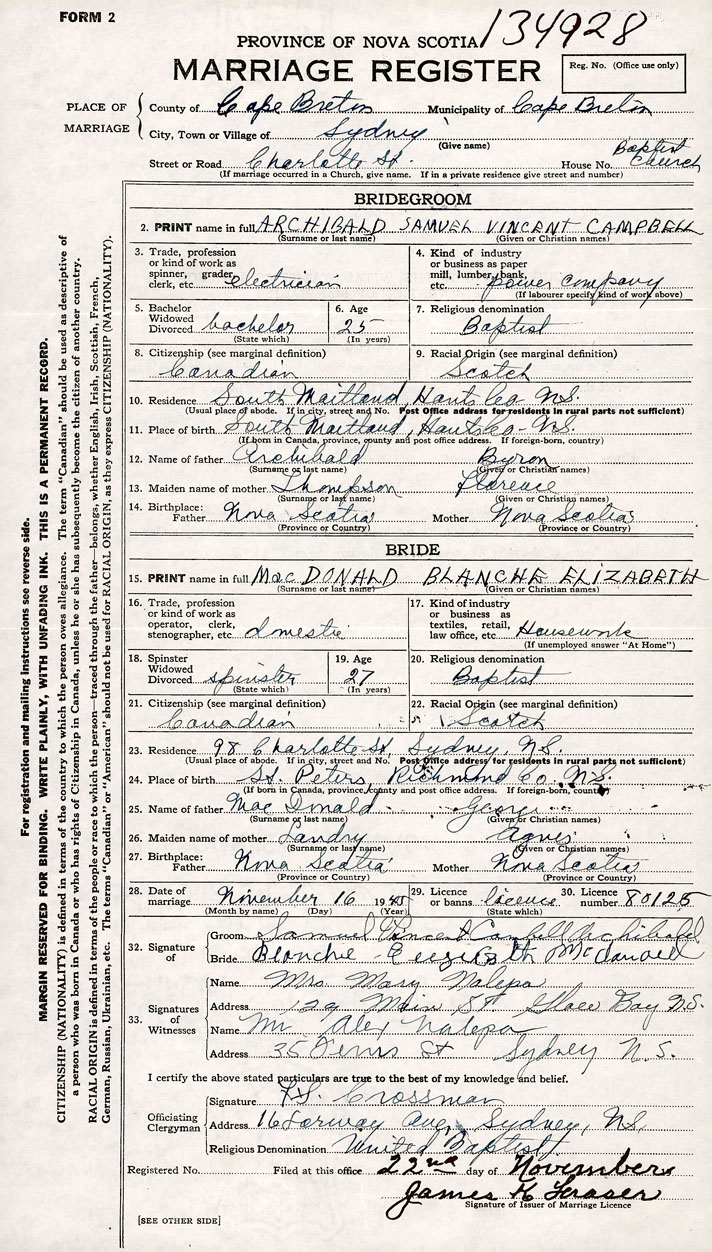 FORM 2
134928
PROVINCE OF NOVA SCOTIA
MARRIAGE REGISTER
Reg. No. (Office use only)
PLACE OF MARRIAGE
County of Cape Breton Municipality of Cape Breton
City, Town or Village of Sydney
(Give name)
Street or Road Charlotte St. House No. Baptist Church
(If marriage occurred in a Church, give name. If in a private residence give street and number)
BRIDEGROOM
2. PRINT name in full ARCHIBALD SAMUEL VINCENT CAMPBELL
(Surname or last name) (Given or Christian names)
3. Trade, profession or kind of work as spinner, grader, clerk, etc. electrician
4. Kind of industry or business as paper mill, lumber, bank, etc. power company
(If labourer specify kind of work above)
5. Bachelor Widowed Divorced bachelor
(State which)
6. Age 25
(In years)
7. Religious denomination
Baptist
8. Citizenship (see marginal definition)
Canadian
9. Racial Origin (see marginal definition)
Scotch
10. Residence South Maitland, Hants Co N.S.
(Usual place of abode. If in city, street and No. Post Office address for residents in rural parts not sufficient)
11. Place of birth South Maitland, Hants Co. N.S.
(If born in Canada, province, county and post office address. If foreign-born, country)
12. Name of father Archibald Byron
(Surname or last name) (Given or Christian names)
13. Maiden name of mother Thompson Florence
(Surname or last name) (Given or Christian names)
14. Birthplace: Father Nova Scotia Mother Nova Scotia
(Province or Country) (Province or Country)
BRIDE
15. PRINT name in full MacDONALD BLANCHE ELIZABETH
(Surname or last name) (Given or Christian names)
16. Trade, profession or kind of work as operator, clerk, stenographer, etc. domestic
17. Kind of industry or business as textiles, retail, law office, etc. Housework
(If unemployed answer "At Home")
18. Spinster Widowed Divorced spinster
(State which)
19. Age 27
(In years)
20. Religious denomination
Baptist
21. Citizenship (see marginal definition)
Canadian
22. Racial Origin (see marginal definition)
Scotch
23. Residence 98 Charlotte St, Sydney, N.S.
(Usual place of abode. If in city, street and No. Post Office address for residents in rural parts not sufficient)
24. Place of birth St. Peters, Richmond Co. N.S.
(If born in Canada, province, county and post office address. If foreign-born, country)
25. Name of father MacDonald George
(Surname or last name) (Given or Christian names)
26. Maiden name of mother Landry Agnes
(Surname or last name) (Given or Christian names)
27. Birthplace: Father Nova Scotia Mother Nova Scotia
(Province or Country) (Province or Country)
28. Date of marriage November 16 1945
(Month by name) (Day) (Year)
29. Licence or banns licence
(State which)
30. Licence number 80125
32. Signature of
Groom Samuel Vincent Campbell Archibald
Bride Blanche Elizabeth McDonald
33. Signatures of Witnesses
Name Mrs. Mary Nalepa
Address 129 Main St Glace Bay N.S.
Name Mr Alex Nalepa
Address 35 St Sydney N.S.
I certify the above stated particulars are true to the best of my knowledge and belief.
Officiating Clergyman
Signature Crossman
Address 16 Ave, Sydney, N.S.
Religious Denomination United Baptist
Registered No. Filed at this office 22nd day of November
James K Fraser
Signature of Issuer of Marriage Licence
[SEE OTHER SIDE]
For registration and mailing instructions see reverse side.
MARGIN RESERVED FOR BINDING. WRITE PLAINLY, WITH UNFADING INK. THIS IS A PERMANENT RECORD.
CITIZENSHIP (NATIONALITY) is defined in terms of the country to which the person owes allegiance. The term "Canadian" should be used as descriptive of
a person who was born in Canada or who has rights of Citizenship in Canada, unless he or she has subsequently become the citizen of another country.
RACIAL ORIGIN is defined in terms of the people or race to which the person—traced through the father—belongs, whether English, Irish, Scottish, French,
German, Russian, Ukrainian, etc. The terms "Canadian" or "American" should not be used for RACIAL ORIGIN, as they express CITIZENSHIP (NATIONALITY).